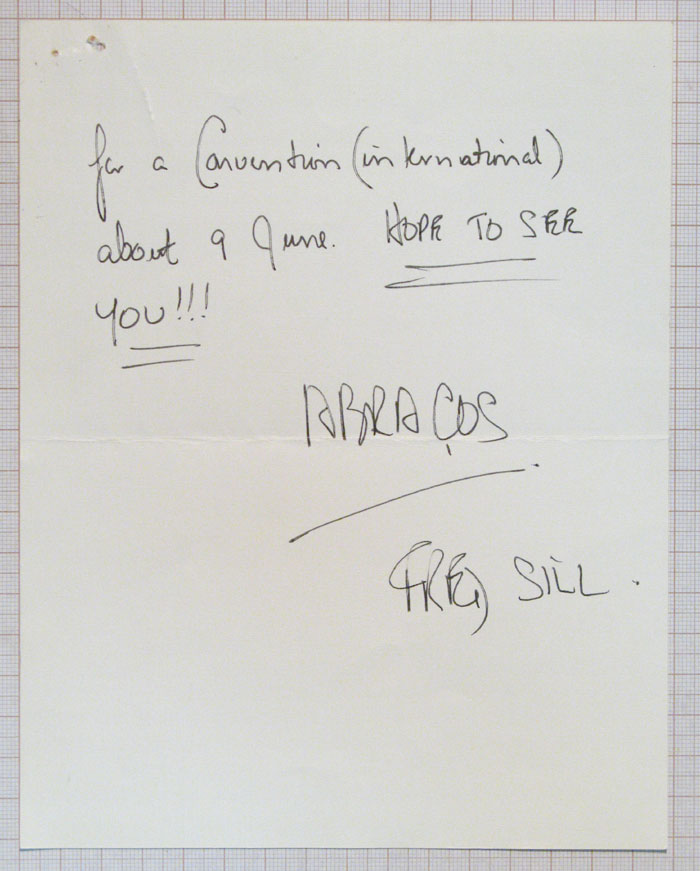 for a Convention (international)
about 9 June. HOPE TO SEE
YOU!!!
ABRAÇOS
FRED SILL.